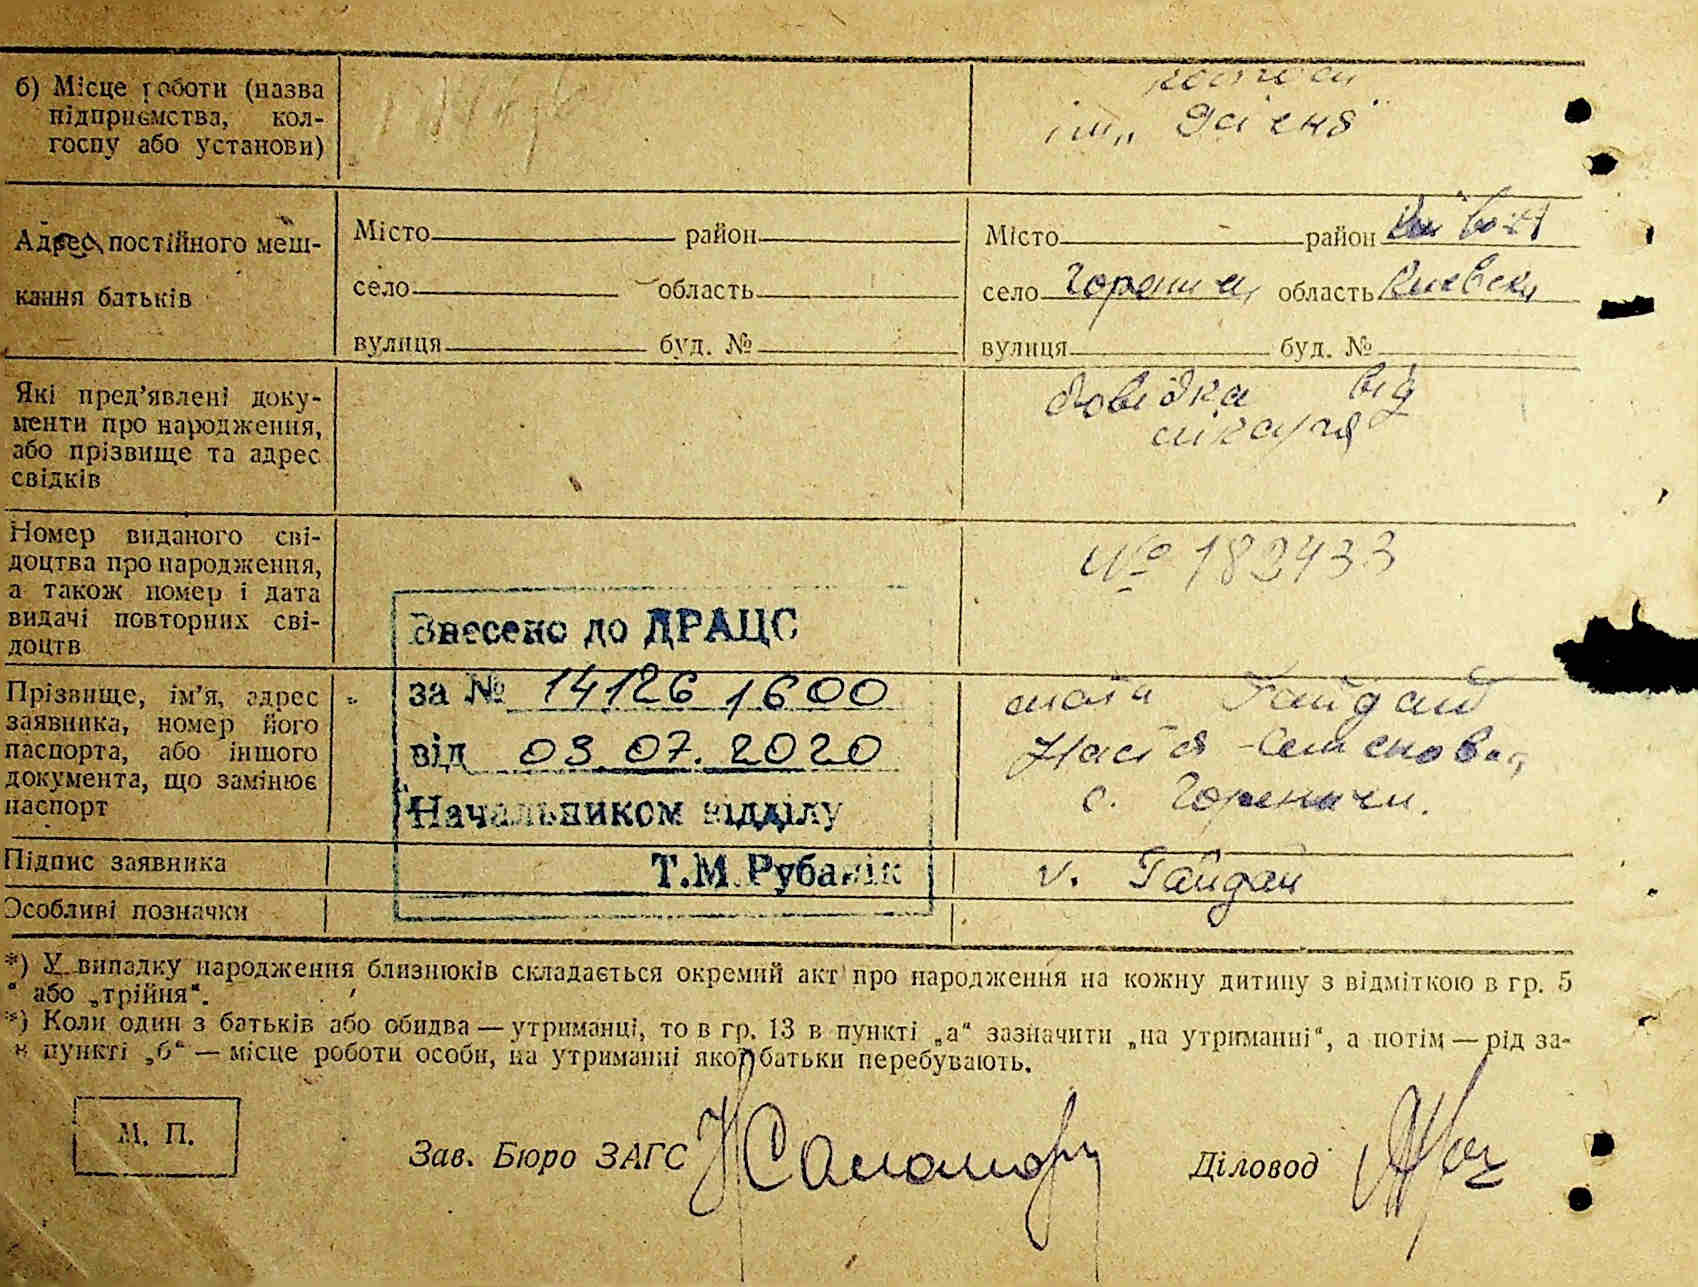 б) Місце роботи (назва
підприємства, кол-
госпу або установи)
колгосп
ім.
Адрес постійного меш-
кання батьків
Місто район
село область
вулиця буд. №
Місто район
село Гореничі область Киевська
вулиця буд. №
Які пред’явлені доку-
менти про народження,
або прізвище та адрес
свідків
довідка від
лікаря
Номер виданого сві-
доцтва про народження,
а також номер і дата
видачі повторних сві-
доцтв
№ 182433
Внесено до ДРАЦС
за № 14126 1600
від 03.07.2020
Начальником відділу
Т.М.Рубанік
Прізвище, ім’я, адрес
заявника, номер його
паспорта, або іншого
документа, що замінює
паспорт
мати Гайдай
Настя Семеновна
с. Гореничи.
Підпис заявника
v. Гайдай
Особливі позначки
*) У випадку народження близнюків складається окремий акт про народження на кожну дитину з відміткою в гр. 5
“ або „трійня“.
*) Коли один з батьків або обидва — утриманці, то в гр. 13 в пункті „а“ зазначити „на утриманні“, а потім — рід за-
в пункті „б“ — місце роботи особи, на утриманні якої батьки перебувають.
М. П.
Зав. Бюро ЗАГС
Діловод